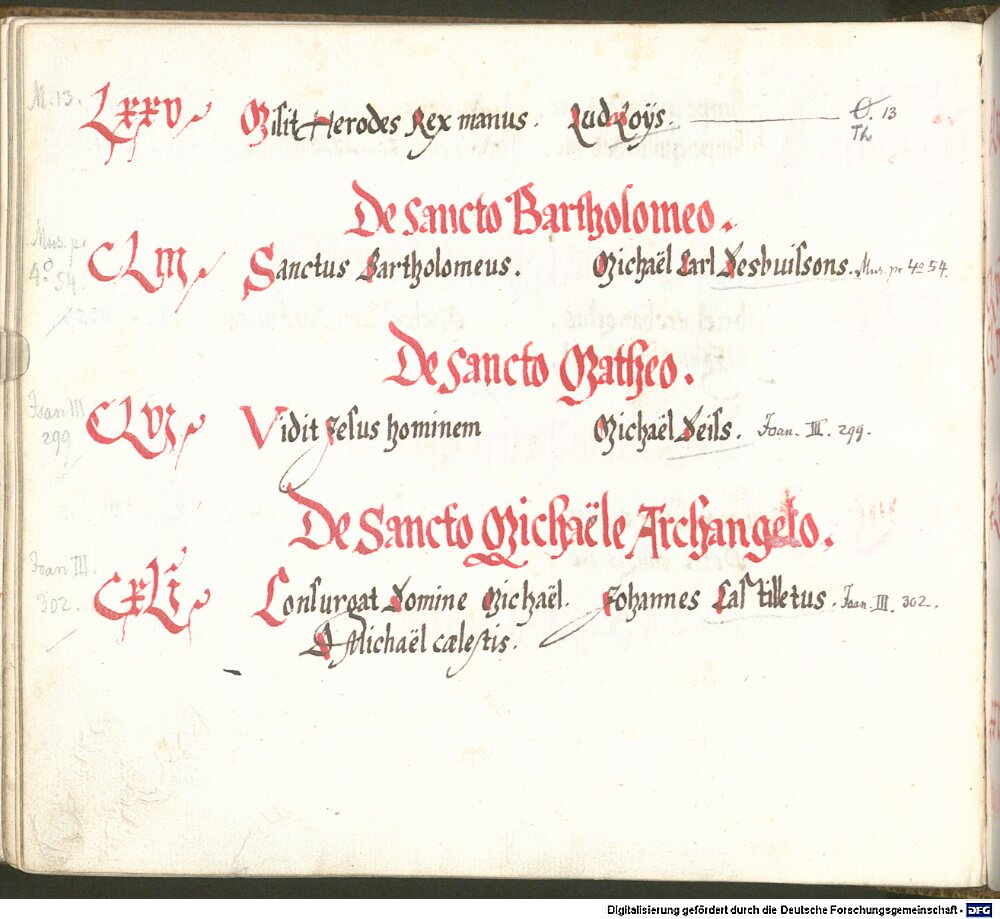 M. 13.
Lxxv Misit Herodes Rex manus. Lud Roÿs. O. 13
Th
De Sancto Bartholomeo.
Mus. pr
4º 54.
CLIII Sanctus Bartholomeus. Michaël Carl Desbuissons. Mus. pr 4º 54.
De Sancto Matheo.
Joan III
299
CLVI Vidit Jesus hominem Michaël Deiss. Joan. III. 299.
De Sancto Michaële Archangelo.
Joan III.
302.
Consurgat Domine Michaël. Johannes Castilletus. Joan. III. 302.
O Michaël cælestis.
Digitalisierung gefördert durch die Deutsche Forschungsgemeinschaft - DFG